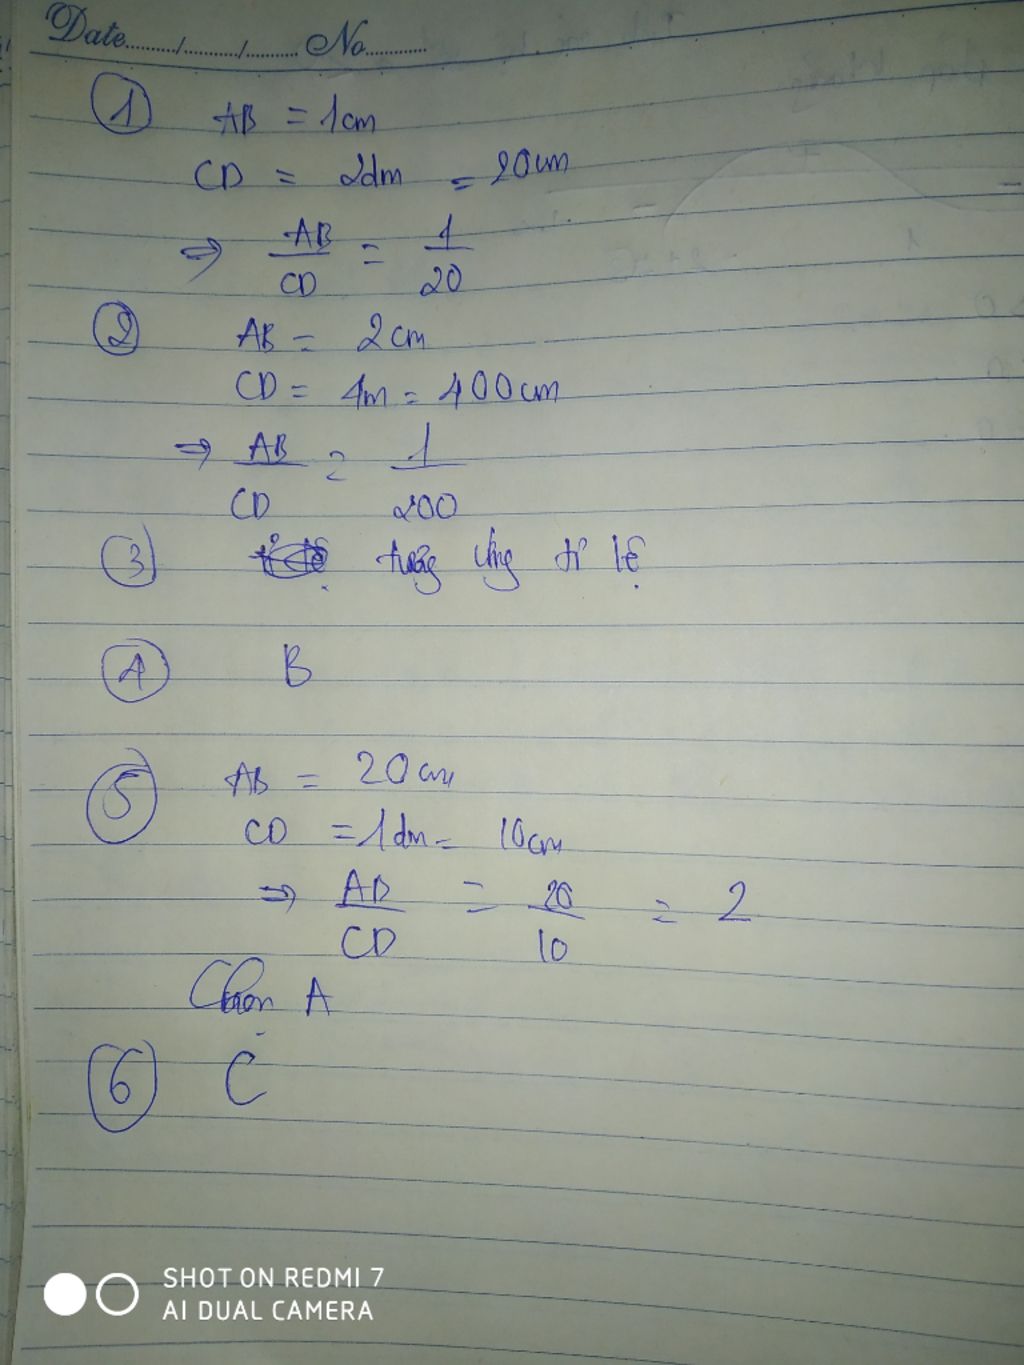 Date........./........./......... No...........
① AB = 1cm
CD = 2dm = 20cm
⇒ AB/CD = 1/20
② AB = 2cm
CD = 4m = 400cm
⇒ AB/CD = 1/200
③ tương ứng tỉ lệ
④ B
⑤ AB = 20cm
CD = 1dm = 10cm
⇒ AB/CD = 20/10 = 2
Chọn A
⑥ C
SHOT ON REDMI 7
AI DUAL CAMERA